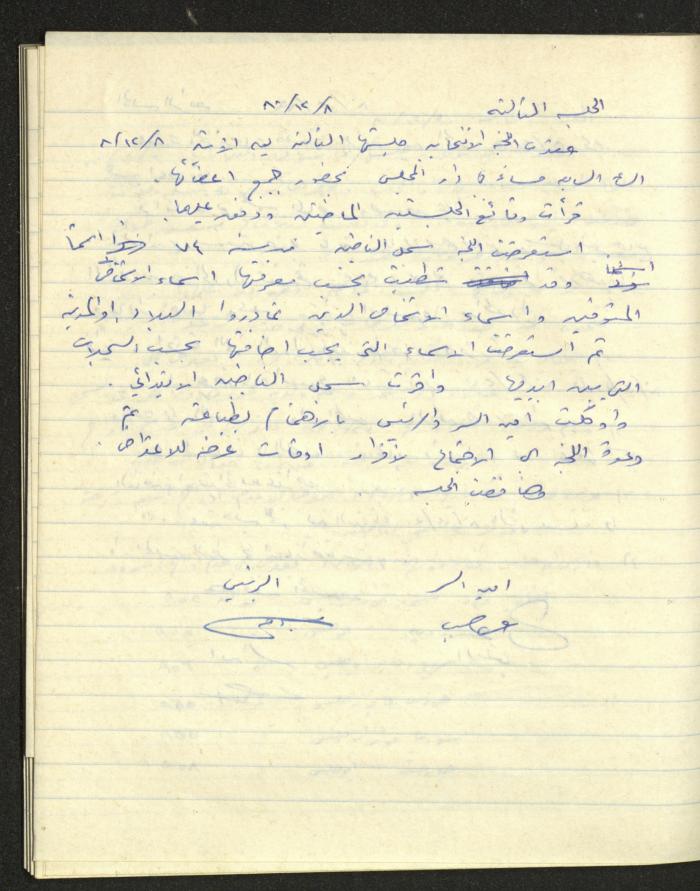 الجلسة الثالثة ٨٠/١٢/٨
عقدت اللجنة الانتخابية جلستها الثالثة يوم الاثنين ٨٠/١٢/٨
الساعة السابعة مساءً في دار المجلس بحضور جميع اعضائها.
قرأت وقائع الجلستين الماضيتين ووفق عليها.
استعرضت اللجنة سجل الناخبين من سنة ٧٤
وقد شطبت بحسب معرفتها اسماء الاشخاص
المتوفين واسماء الاشخاص الذين غادروا البلاد او المدينة
ثم استعرضت الاسماء التي يجب اضافتها بحسب السجلات
التي بين ايديها واقرت سجل الناخبين الابتدائي.
واوكلت امين السر والرئيس بالاهتمام بطباعته ثم
دعوة اللجنة الى الاجتماع لاقرار اوقات عرضه للاعتراض.
وهنا فضت الجلسة.
امين السر الرئيس